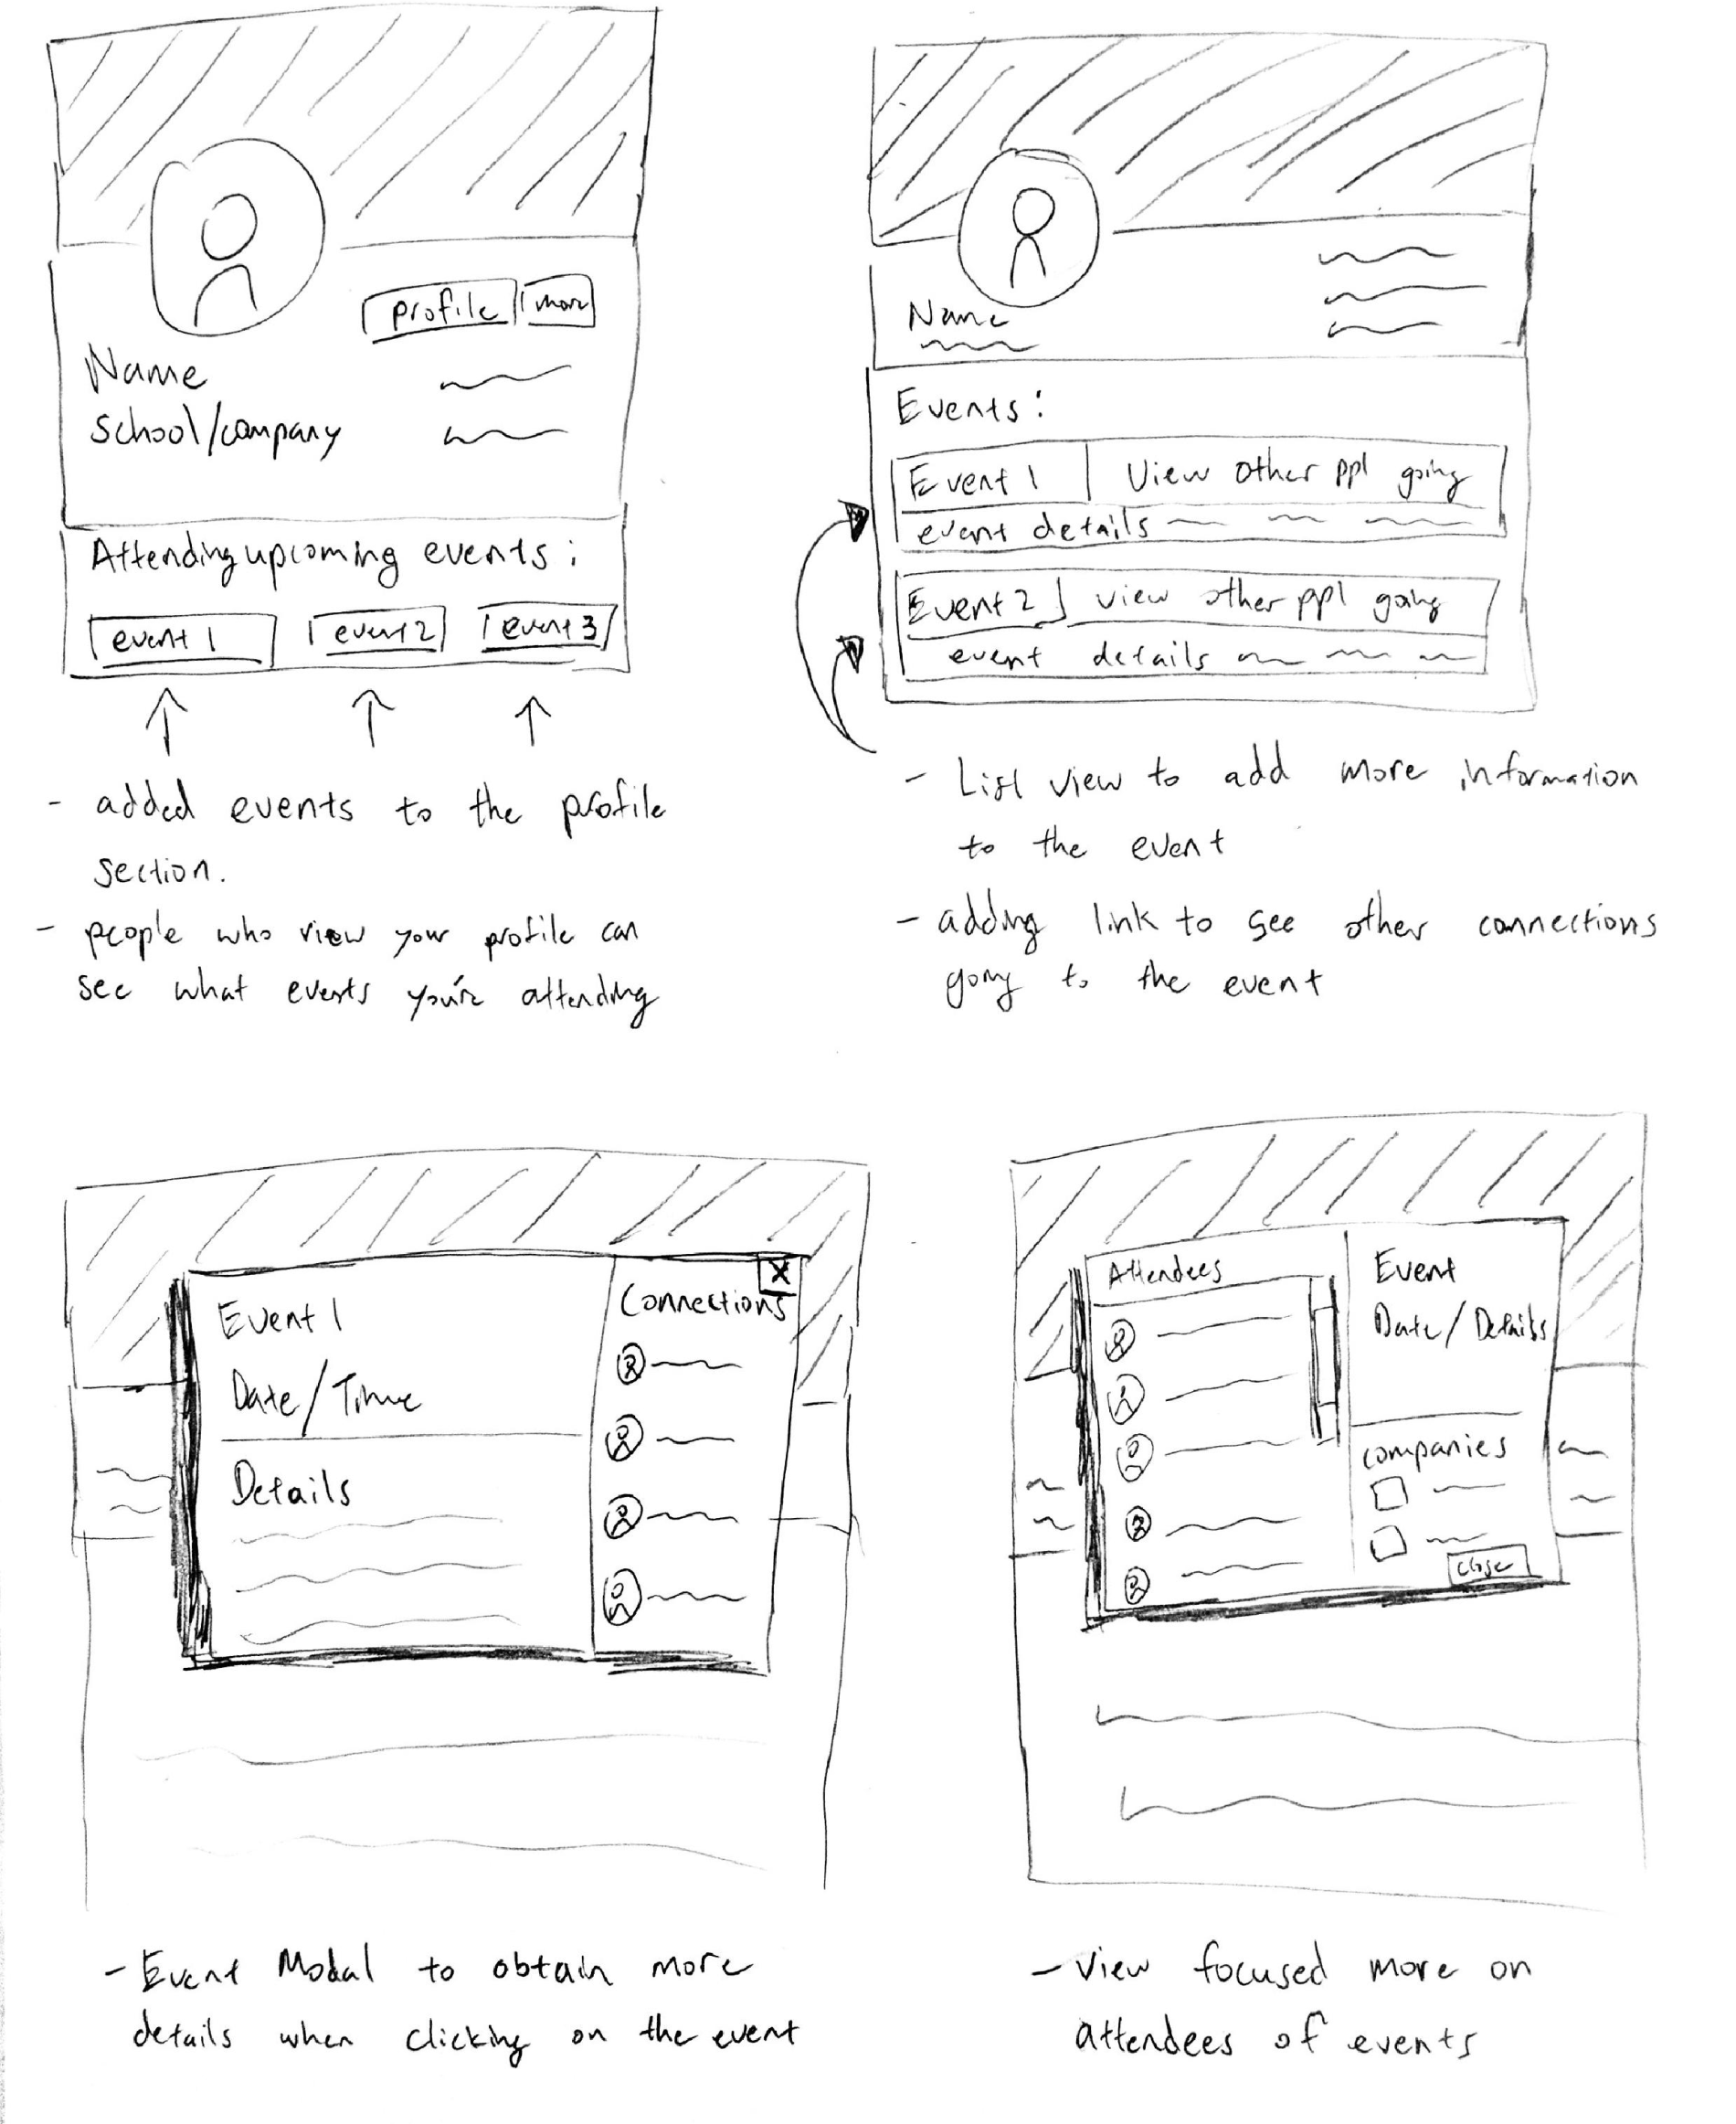 profile
more
Name
school/company
Attending upcoming events:
event 1
event 2
event 3
- added events to the profile
section.
- people who view your profile can
see what events you're attending
Name
Events:
Event 1
View other ppl going
event details
Event 2
view other ppl going
event details
- List view to add more information
to the event
- adding link to see other connections
going to the event
X
Event 1
Connections
Date/Time
Details
- Event Modal to obtain more
details when clicking on the event
Attendees
Event
Date/Details
companies
close
- View focused more on
attendees of events